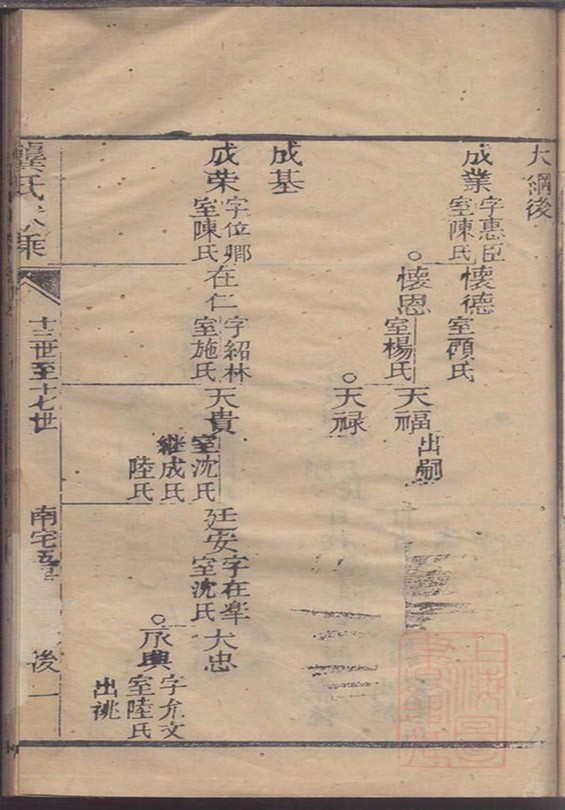 大綱後
成業
字惠臣
室陳氏
懷德
室顧氏
懷恩
室楊氏
天福
出嗣
天禄
成基
成荣
字位卿
室陳氏
在仁
字紹林
室施氏
天貴
室沈氏
継成氏
陸氏
廷安
字在峯
室沈氏
大忠
永興
字允文
室陸氏
出祧
龔氏家乘
十三世至十七世
南宅
後一